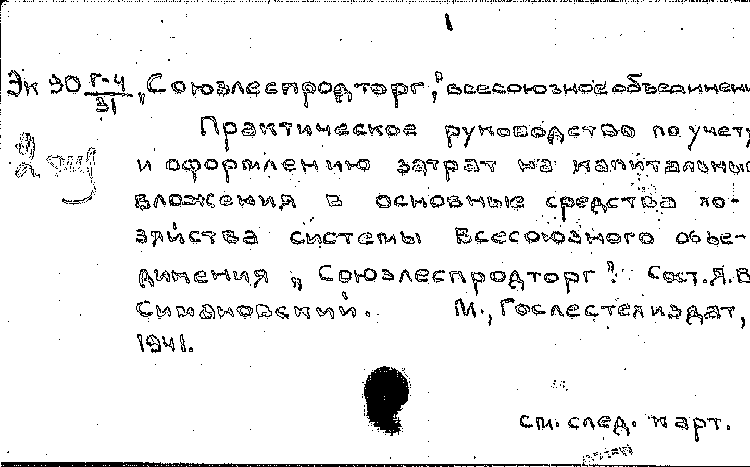 1
Эк 30 Г-4/31 „Союзлеспродторг“, всесоюзное объединени
Практическое руководство по учету
и оформлению затрат на капитальные
вложения в основные средства хо-
зяйства системы Всесоюзного объе-
динения „Союзлеспродторг“. Сост. Я.В.
Симановский. М., Гослестехиздат,
1941.
см. след. карт.